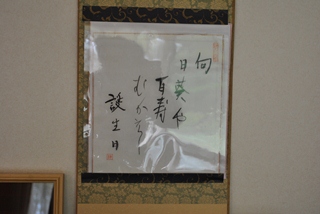 向
日葵や
百寿
むかえし
誕生日